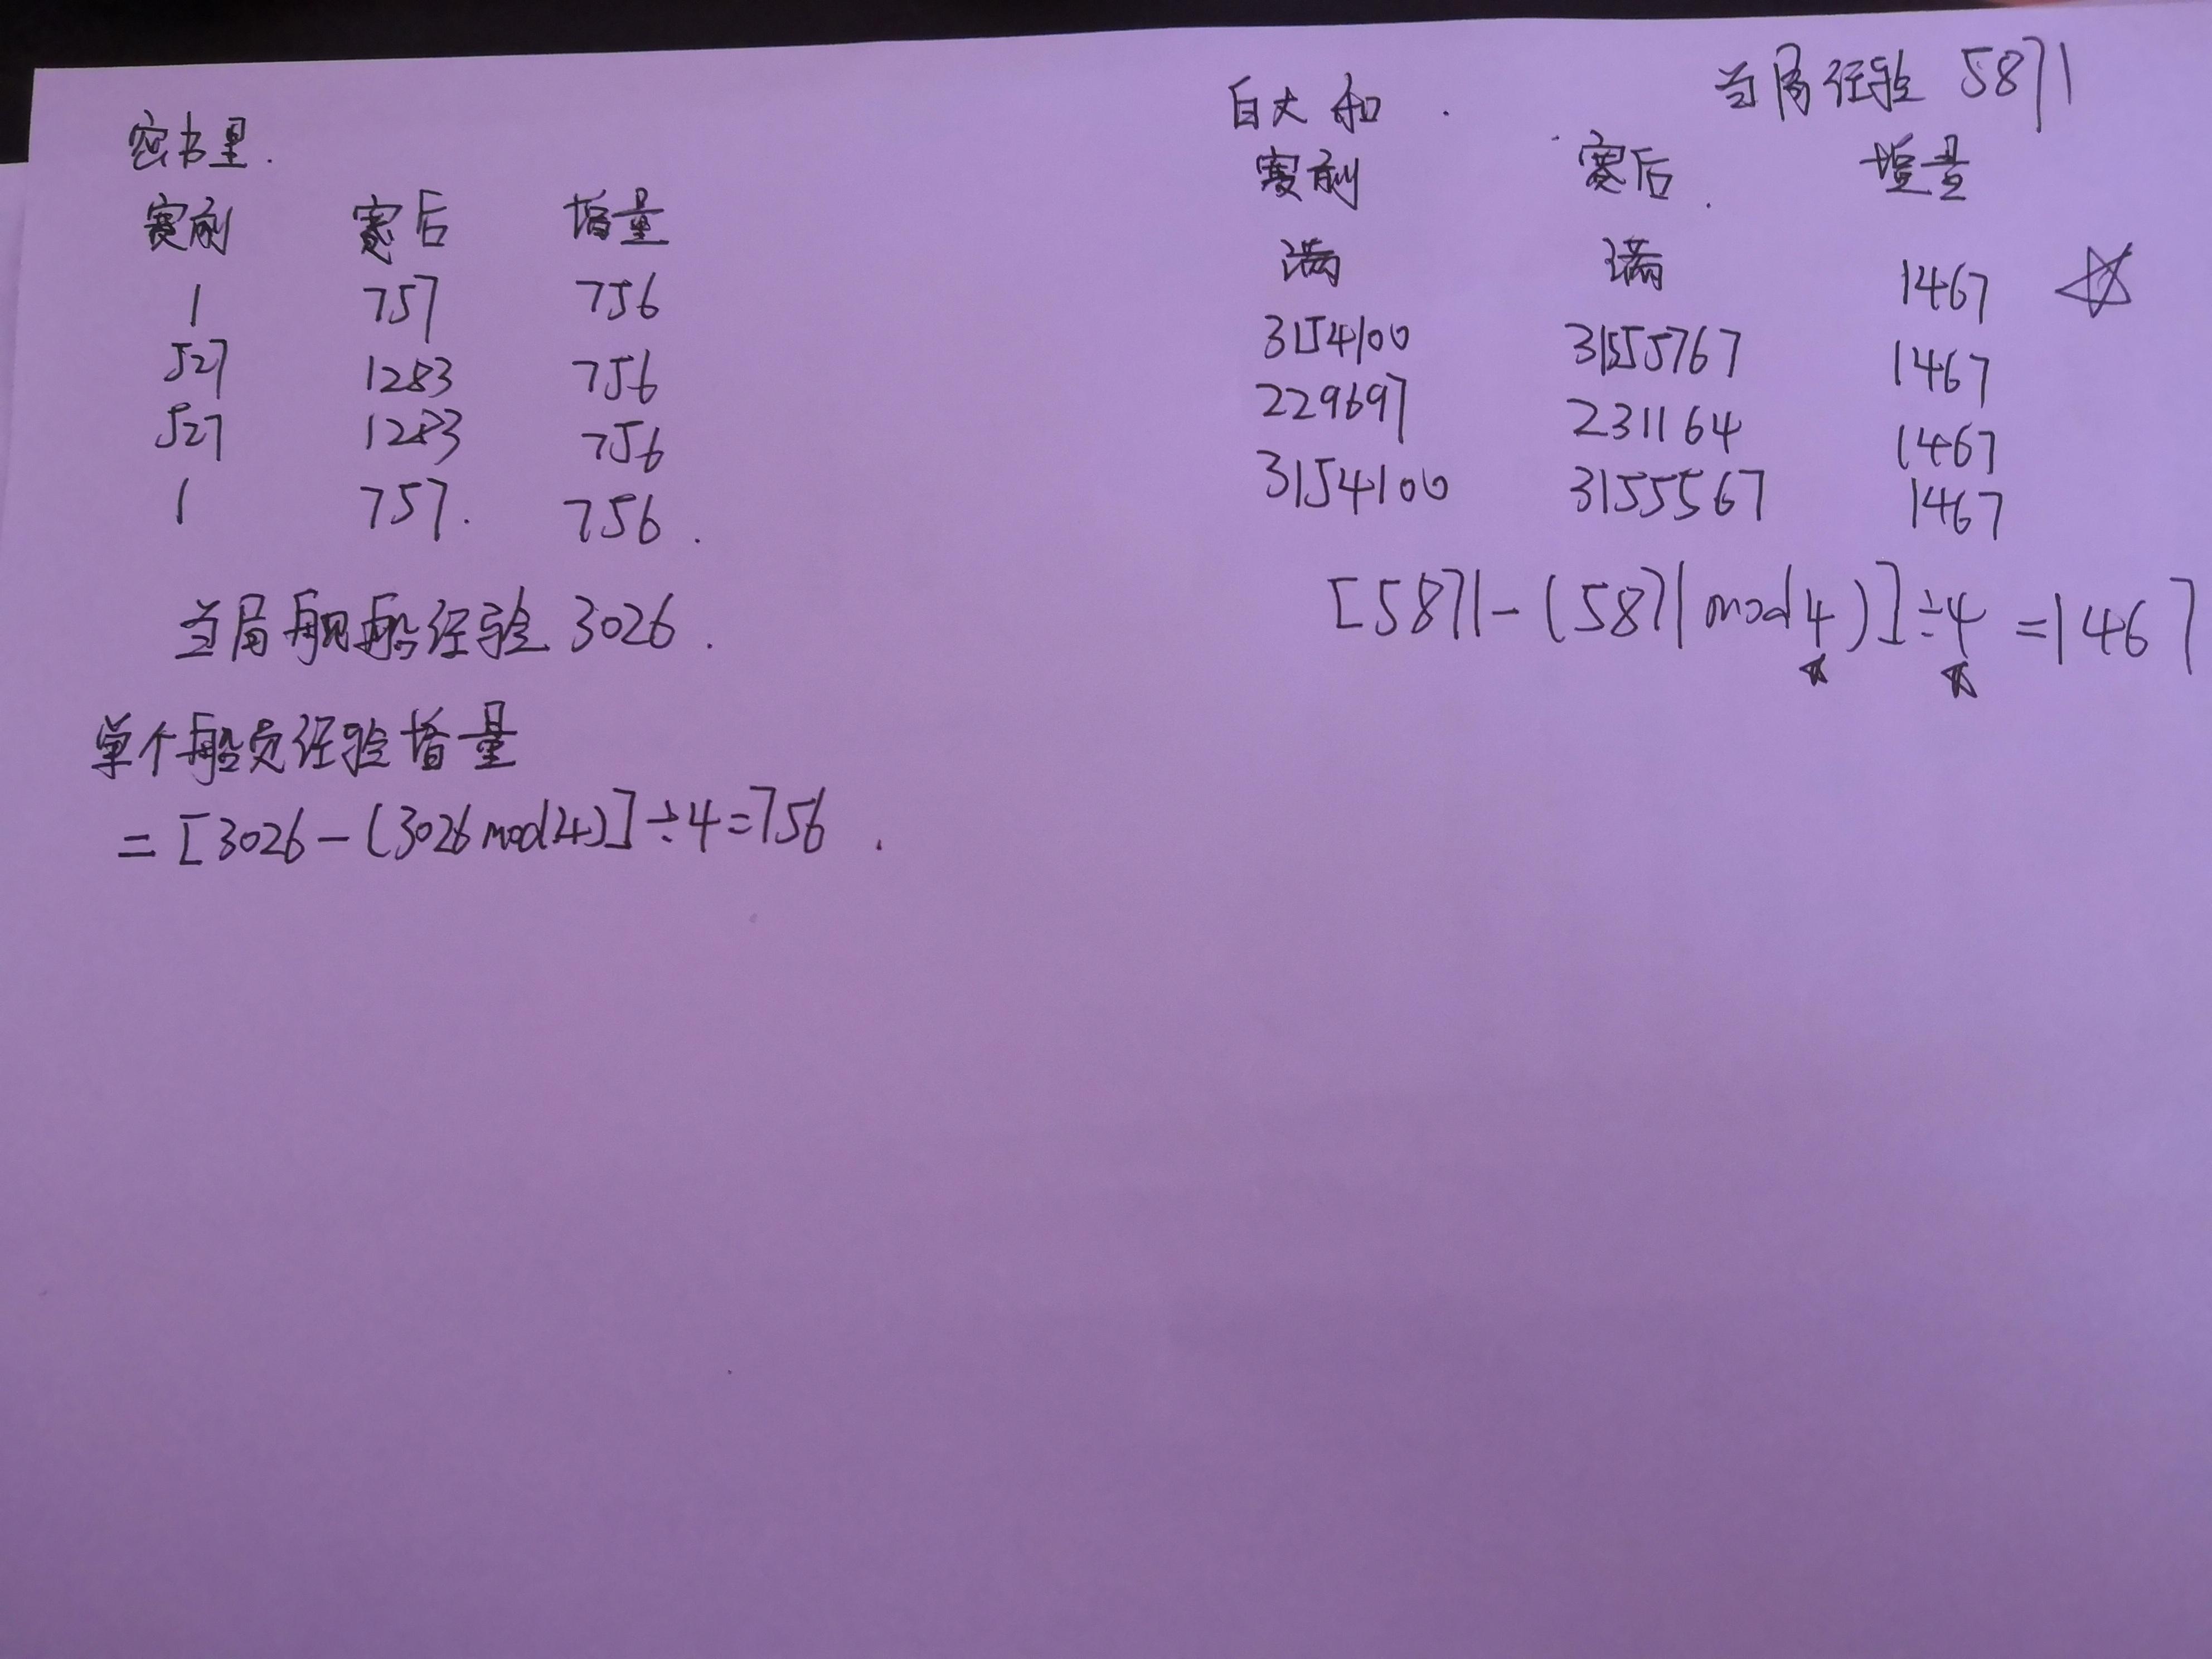 密书里.
赛前 赛后 增量
1 757 756
527 1283 756
527 1283 756
1 757. 756.
当局舰船经验 3026.
单个船员经验增量
=[3026-(3026mod4)]÷4=756.
白大和. 当局经验 5871
赛前 赛后. 增量
满 满 1467 ☆
3154100 3155767 1467
229697 231164 1467
3154100 3155567 1467
[5871-(5871mod4)]÷4=1467